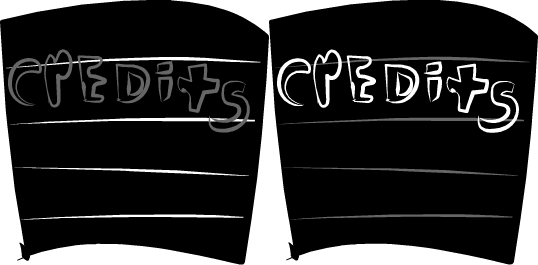 CrEDitS CrEDitS